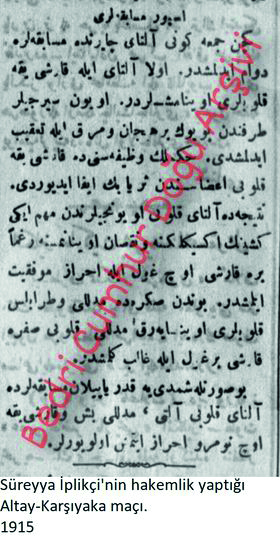 اسپور مسابقه‌لری
كچن جمعه كونی آلتای چایرنده مسابقه‌لره
دوام ایدلمشدر. اولا آلتای ایله قارشی یقه
قلوبلری اوینامشلردر. اویون سیرجیلر
طرفندن بویوك برهیجان ومراق ایله تعقیب
ایدلمشدی. حكملك وظیفه‌سنی‌ده قارشی یقه
قلوبی اعضاسندن ثریا بك ایفا ایدیوردی.
نتیجه‌ده آلتای قلوبی اویونجیلرندن مهم ایكی
كشینك اكسیكلكنه نقصان اوینانمسنه رغماً
بره قارشی اوچ غول ایله احراز موفقیت
ایلمشدر. بوندن صكرده مدللی وطرابلس
قلوبلری اوینایه‌رق مدللی قلوبی صفره
قارشی برغول ایله غالب كلمشدر.
بوصورتله شمدی‌یه قدر یاپیلان مسابقه‌لرده
آلتای قلوبی آلتی، مدللی بش وقارشی‌یقه
اوچ نومرو احراز ایتمش اولویورلر.
Bedri Cumhur Doğu Arşivi
Süreyya İplikçi'nin hakemlik yaptığı
Altay-Karşıyaka maçı.
1915